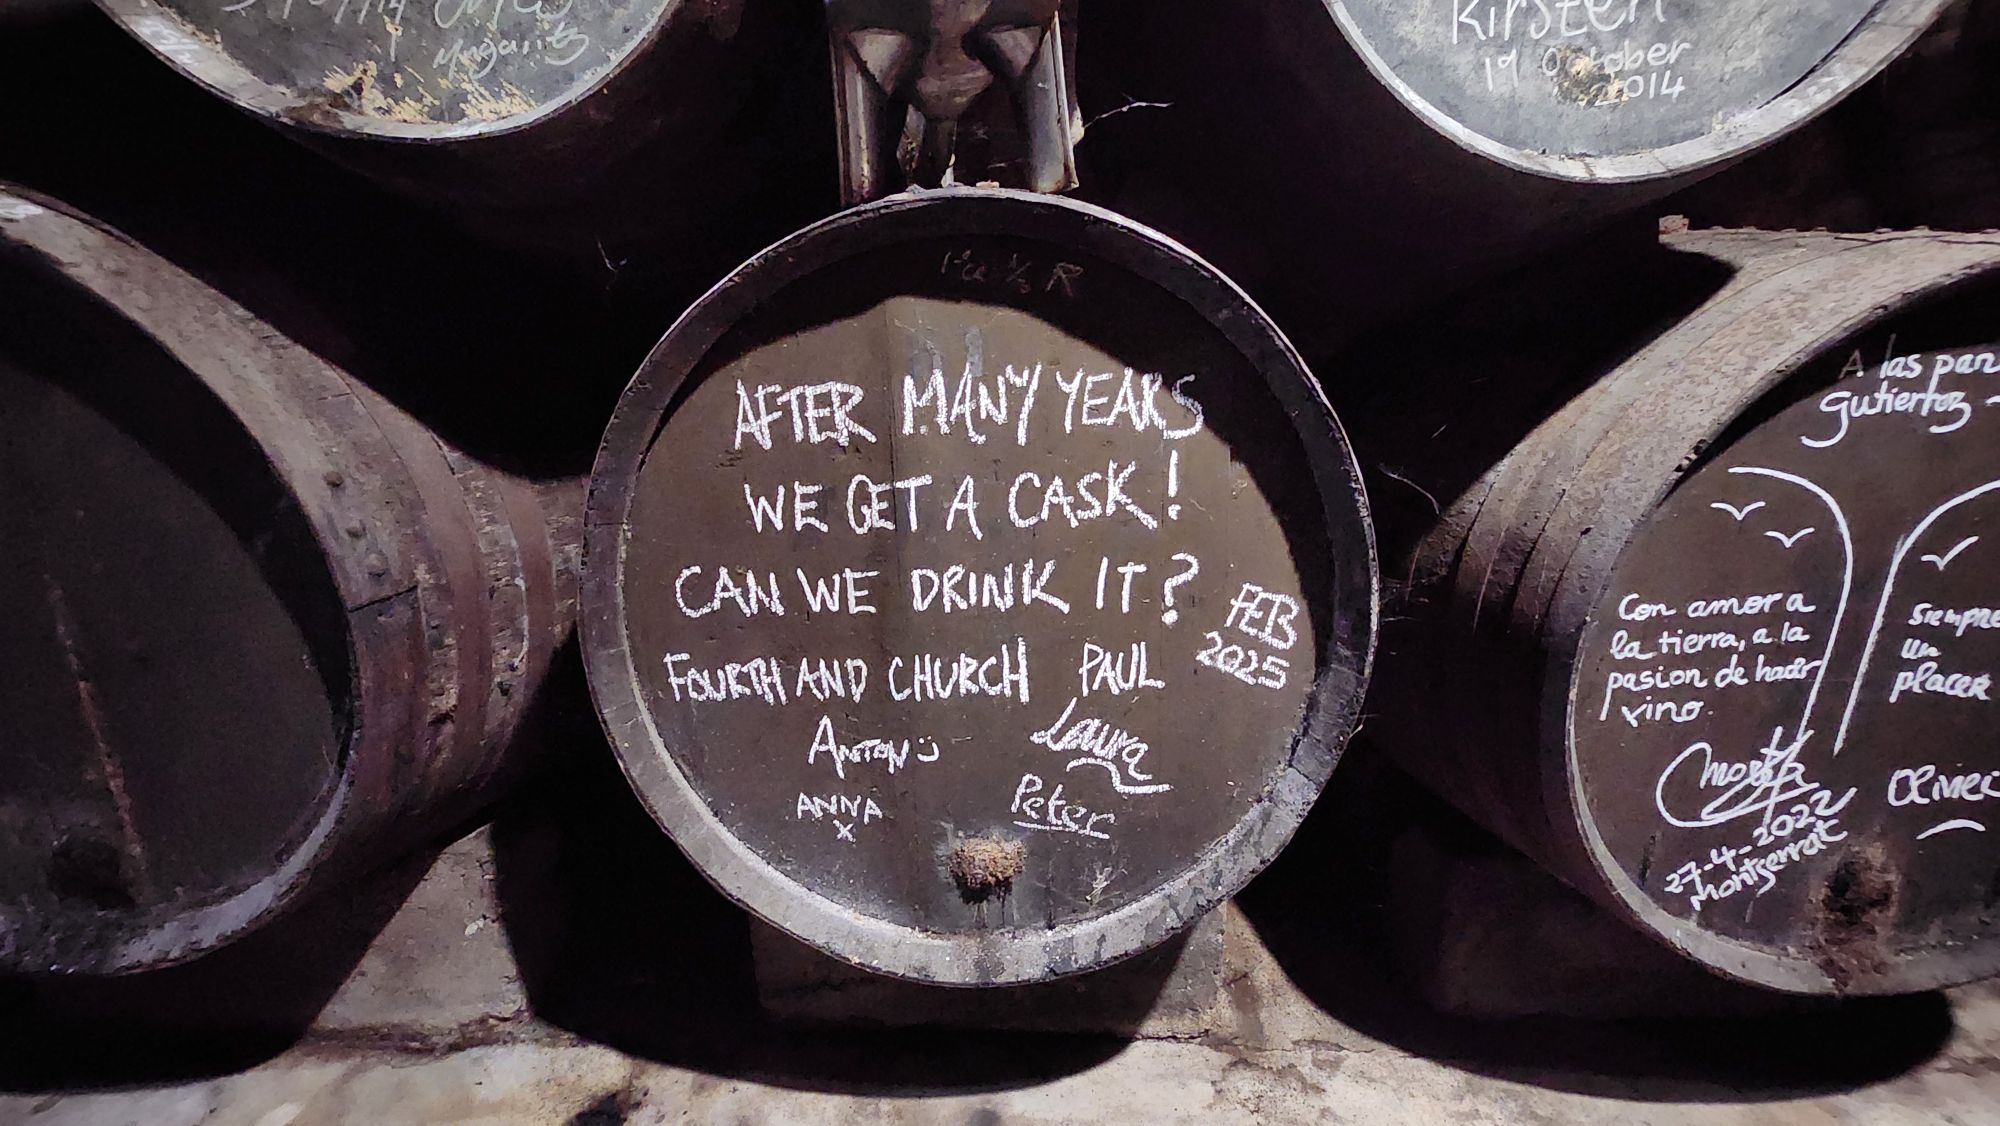 Margarit
Kirsten
19 October
2014
AFTER MANY YEARS
WE GET A CASK!
CAN WE DRINK IT?
FOURTH AND CHURCH PAUL
FEB
2025
ANTON
Laura
ANNA
X
Peter
A las
Con amor a
la tierra, a la
pasion de hacer
vino.
27-4-2022
Montserrat
siempre
un
placer